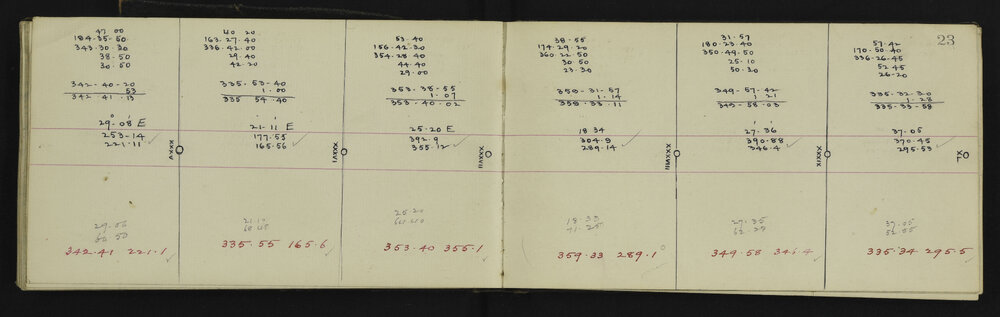 47 00
184.35.50
343.30.30
38.50
30.50
342-40-20
53
342 41. 13
29° 08' E
253-14
221.11
XXXV
29.05
342.41 221.1
40 20
163.27.40
336.42.00
29.40
42.20
335.53.40
1.00
335 54.40
21.11 E
177.55
165.56
XXXVI
21.10
335.55 165.6
53.40
156.42.30
354.28.40
44.40
29.00
353.38-55
1.07
353.40.02
25.20 E
392.9
355.12
XXXVII
25.20
353.40 355.1
38.55
174.29.20
360.22.50
30 50
23.30
1.14
18.34
304.9
289.14
XXXVIII
18.33
71.25
359.33 289.1
31.57
180.23.40
350.49.50
25.10
50.30
349-57.42
1 21
27.36
390.88
346.4
XXXIX
27.35
349.58 346.4
23
57.42
170.50.40
336.26.45
52 45
26-20
335.32.30
1.28
335.33-58
37.05
370.45
295.53
XL
37.05
335.34 295.5